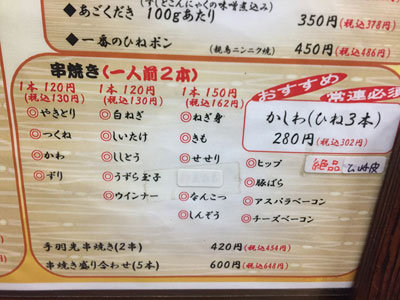 (すじとこんにゃくの味噌煮込み)
あごくだき 100gあたり 350円(税込378円)
一番のひねポン (親鳥ニンニク焼) 450円(税込486円)
串焼き(一人前2本)
1本 120円 (税込130円)
◎やきとり
◎つくね
◎かわ
◎ずり
1本 120円 (税込130円)
◎白ねぎ
◎しいたけ
◎ししとう
◎うずら玉子
◎ウインナー
1本 150円 (税込162円)
◎ねぎ身
◎きも
◎せせり
◎なんこつ
◎しんぞう
おすすめ
常連必須
かしわ(ひね3本)
280円(税込302円)
◎ヒップ
◎豚ばら
◎アスパラベーコン
◎チーズベーコン
絶品
手羽先串焼き(2串) 420円(税込454円)
串焼き盛り合わせ(5本) 600円(税込648円)